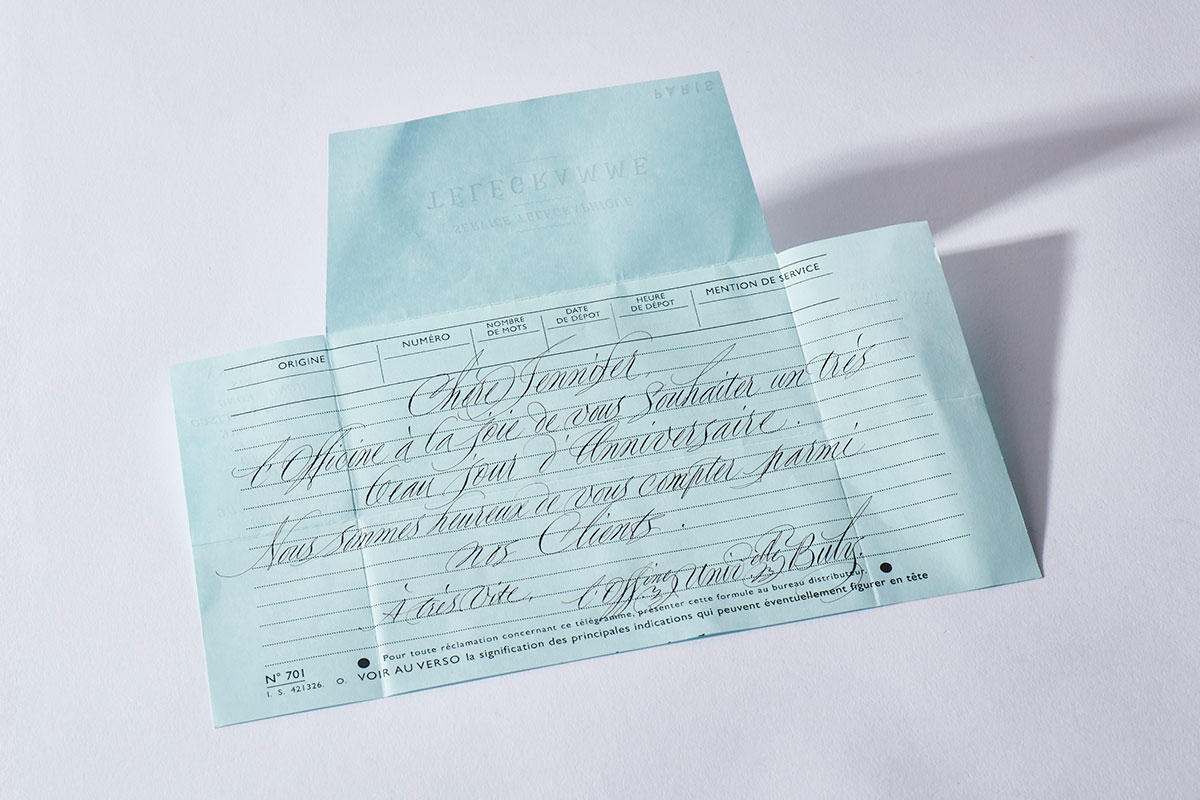 PARIS
TÉLÉGRAMME
SERVICE TÉLÉGRAPHIQUE
ORIGINE
NUMÉRO
NOMBRE
DE MOTS
DATE
DE DÉPOT
HEURE
DE DÉPOT
MENTION DE SERVICE
Chère Jennifer,
l'Officine à la joie de vous souhaiter un très
beau jour d'Anniversaire.
Nous sommes heureux de vous compter parmi
nos Clients.
À très vite, l'Officine Univelle Buly.
Pour toute réclamation concernant ce télégramme, présenter cette formule au bureau distributeur.
N° 701
I. S. 421326. O. VOIR AU VERSO la signification des principales indications qui peuvent éventuellement figurer en tête